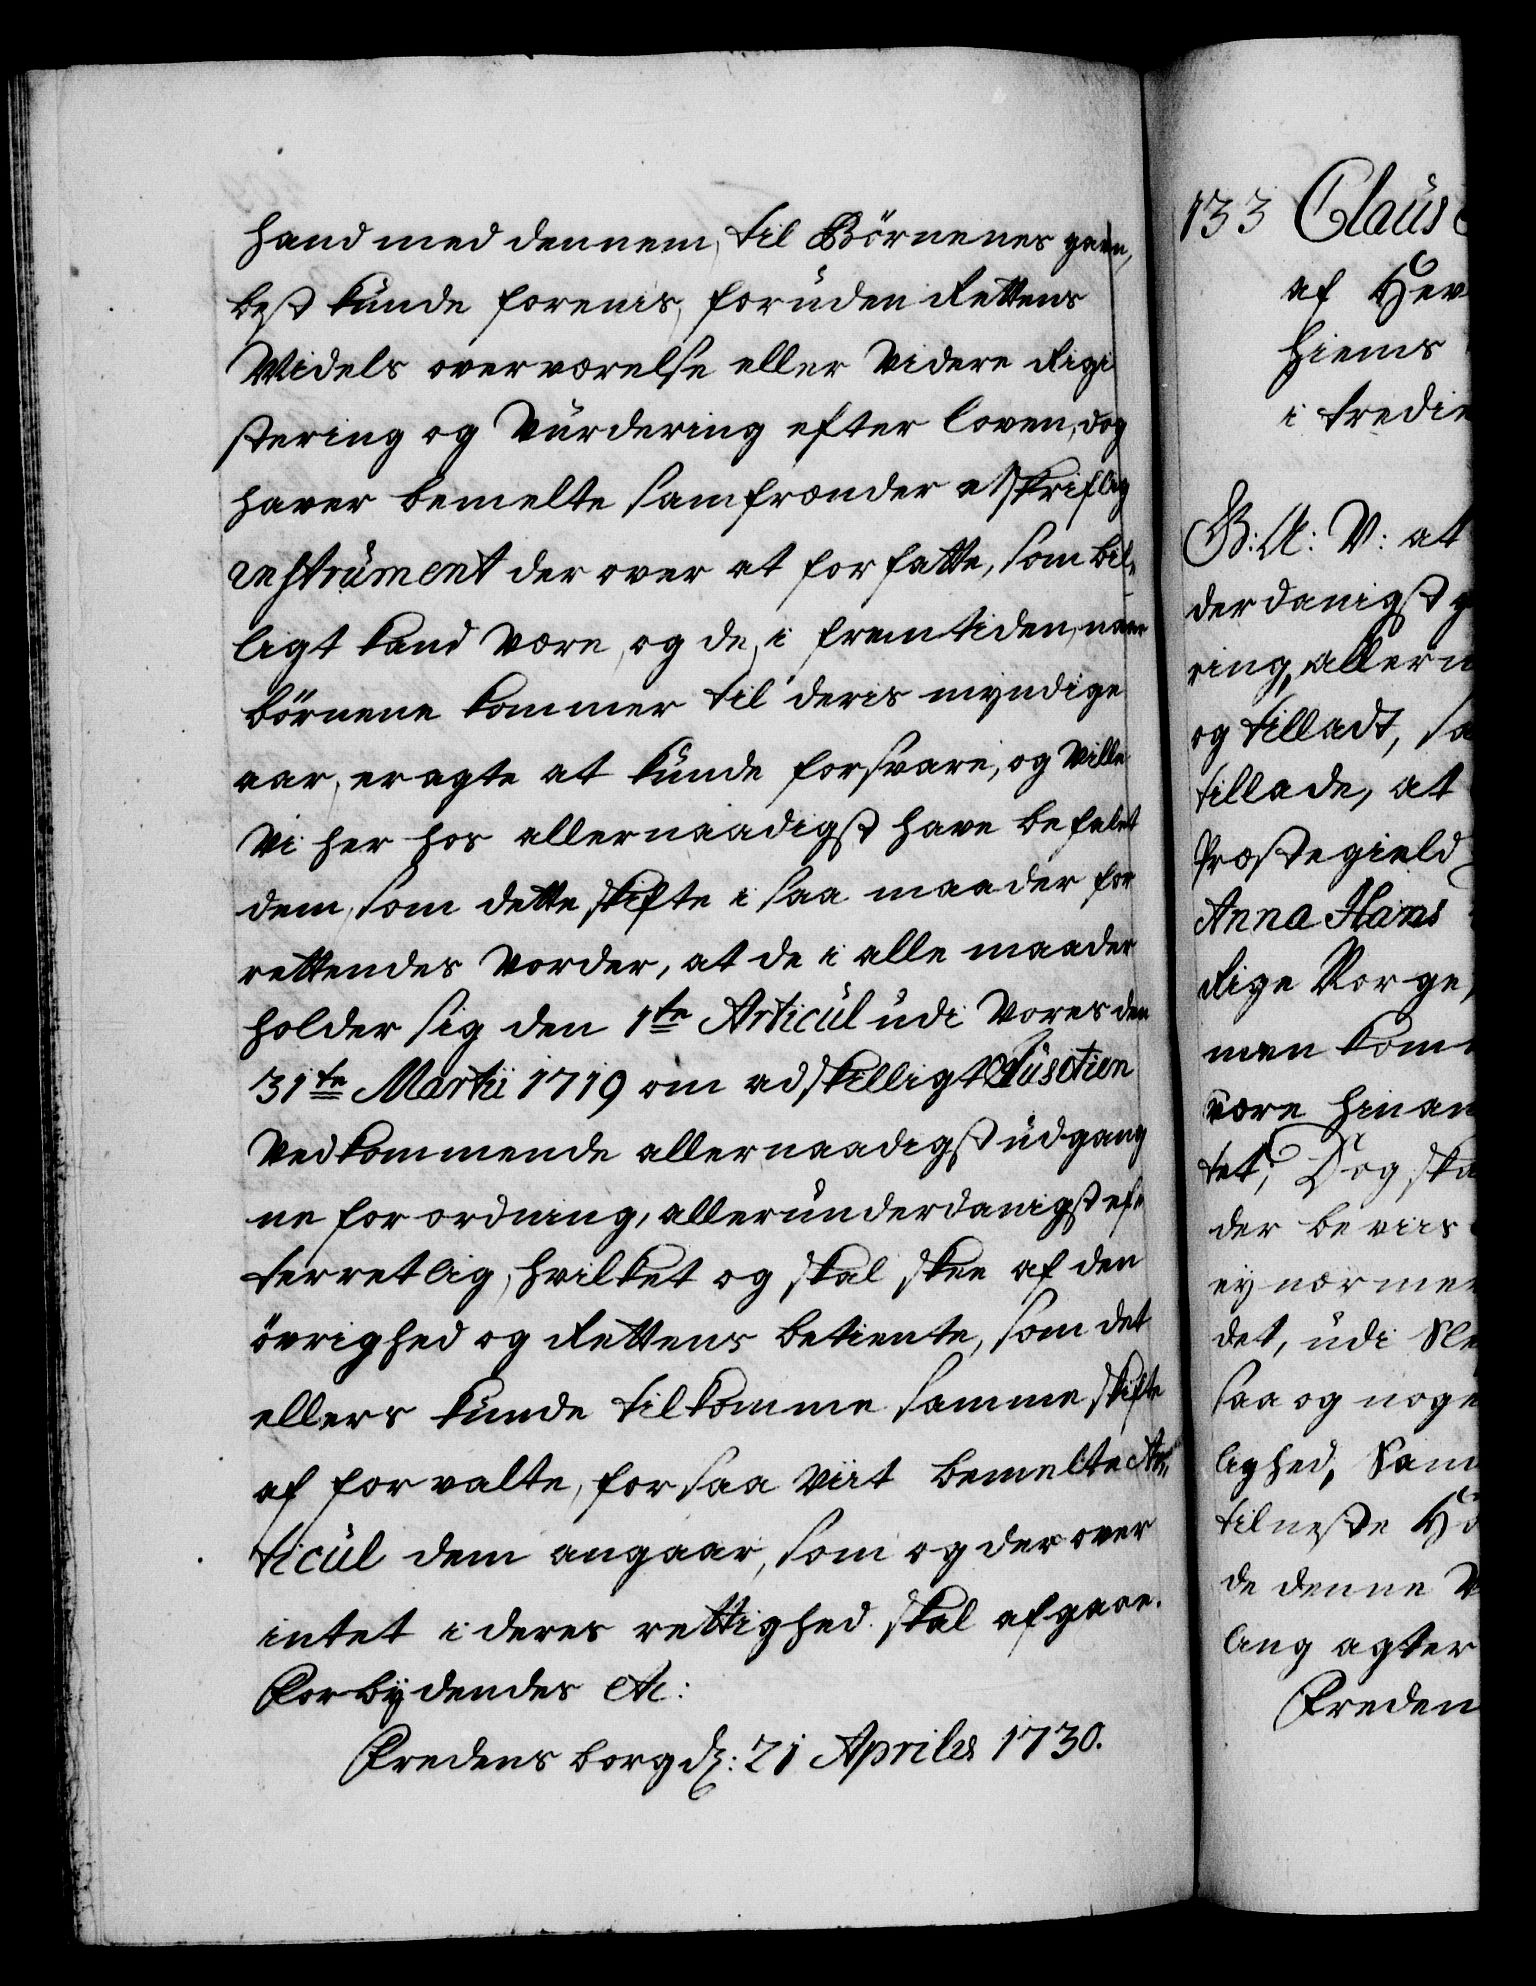 hand med dennem, til Börnenes gavn,
best kunde foreenis, foruden Rettens
Midels overværelse eller Videre Regi
stering og Vurdering efter loven, dog
haver bemelte samfrænder et Skriftlig
instrument der over at forfatte, som bil-
ligt kand være, og de, i fremtiden, naar
börnene kommer til deris myndige
aar, eragte at kunde forsvare, og Ville
Vi her hos allernaadigst have befalet
dem, som dette skifte i saa maader for
rettendes Vorder, at de i alle maader
holder sig den 1te Articul udi Vores den
31te Martii 1719 om adskilligt Justitien
Vedkommende allernaadigst udgang
ne forordning, allerunderdanigst ef-
terretlig, hvilket og skal skee af den
övrighed og Rettens betiente, som det
ellers kunde tilkomme samme skifte
af forvalte, forsaa viit bemelte Ar-
ticul dem angaar, som og derover
intet i deres rettighed skal afgaae.
Forbydendes etc:
Fredensborg d: 21 Aprilis 1730.
133 Claus
af Her
hiems
i tredie
G: A: V: at
derdanigst
ring, allern
og tilladt, sa
tillade, at
Præstegield
Anna Hans
Rige Norge,
men kom
være hinan
tet; Dog ska
der beviis
ey nærmer
det, udi Sle
saa og noge
lighed, Sam
tilneste
de denne
lang agter
Freden